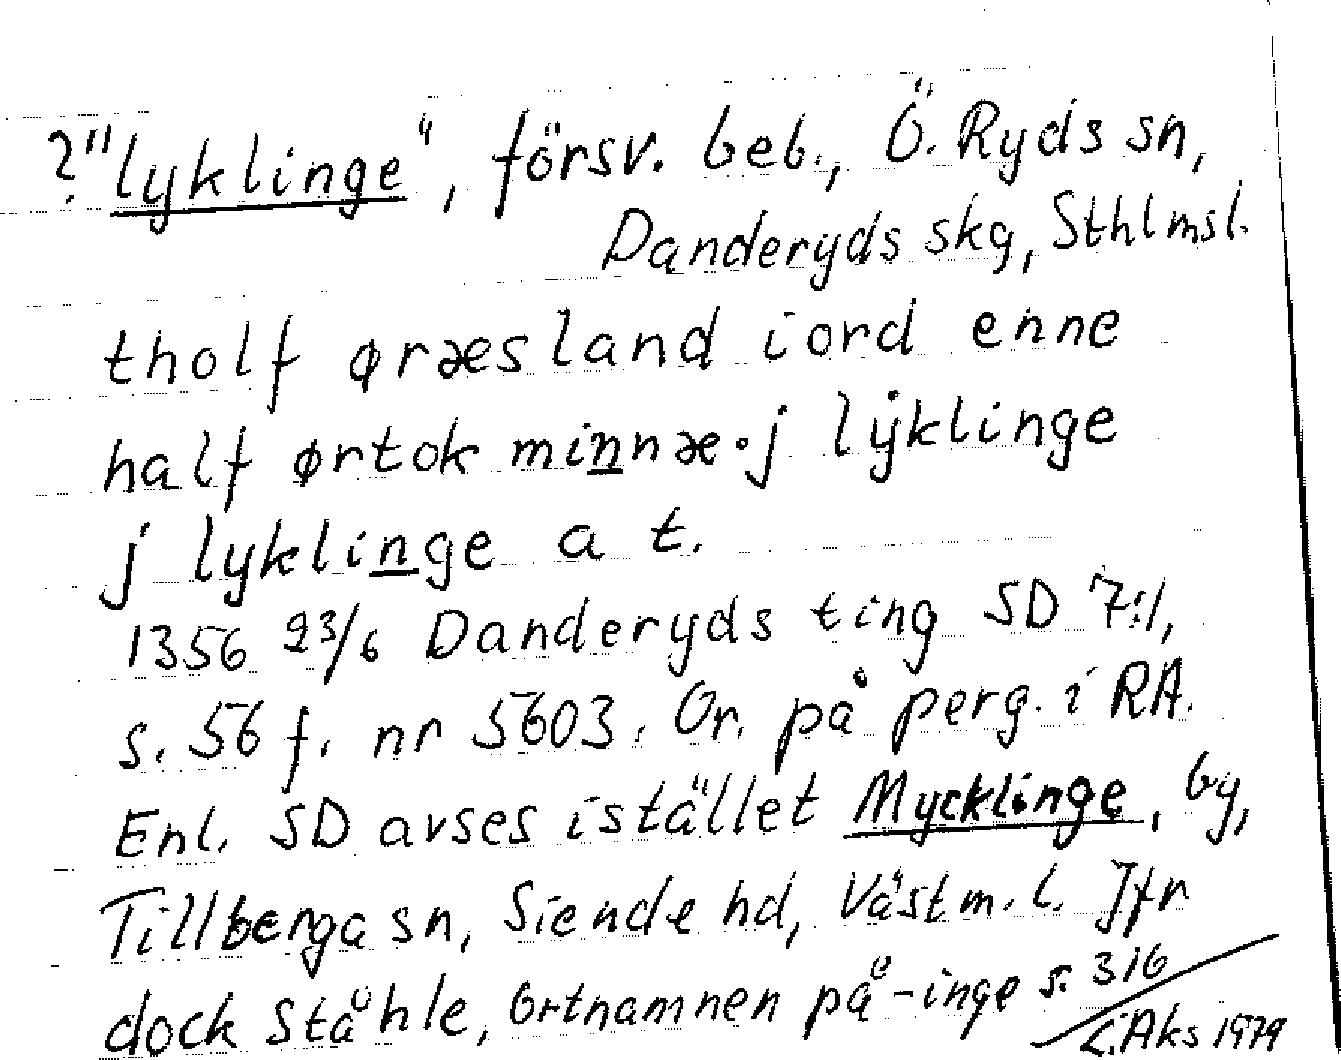 ?"lyklinge", försv. beb., Ö. Ryds sn,
Danderyds skg, Sthlmsl.
tholf øræsland iord enne
half ørtok minnæ · j lÿklinge
j lyklinge a t.
1356 23/6 Danderyds ting SD 7:1,
s. 56 f. nr 5603. Or. på perg. i RA.
Enl. SD avses istället Mycklinge, by,
Tillberga sn, Siende hd, Västm. l. Jfr
dock Ståhle, Ortnamnen på -inge s. 316
Aks 1979